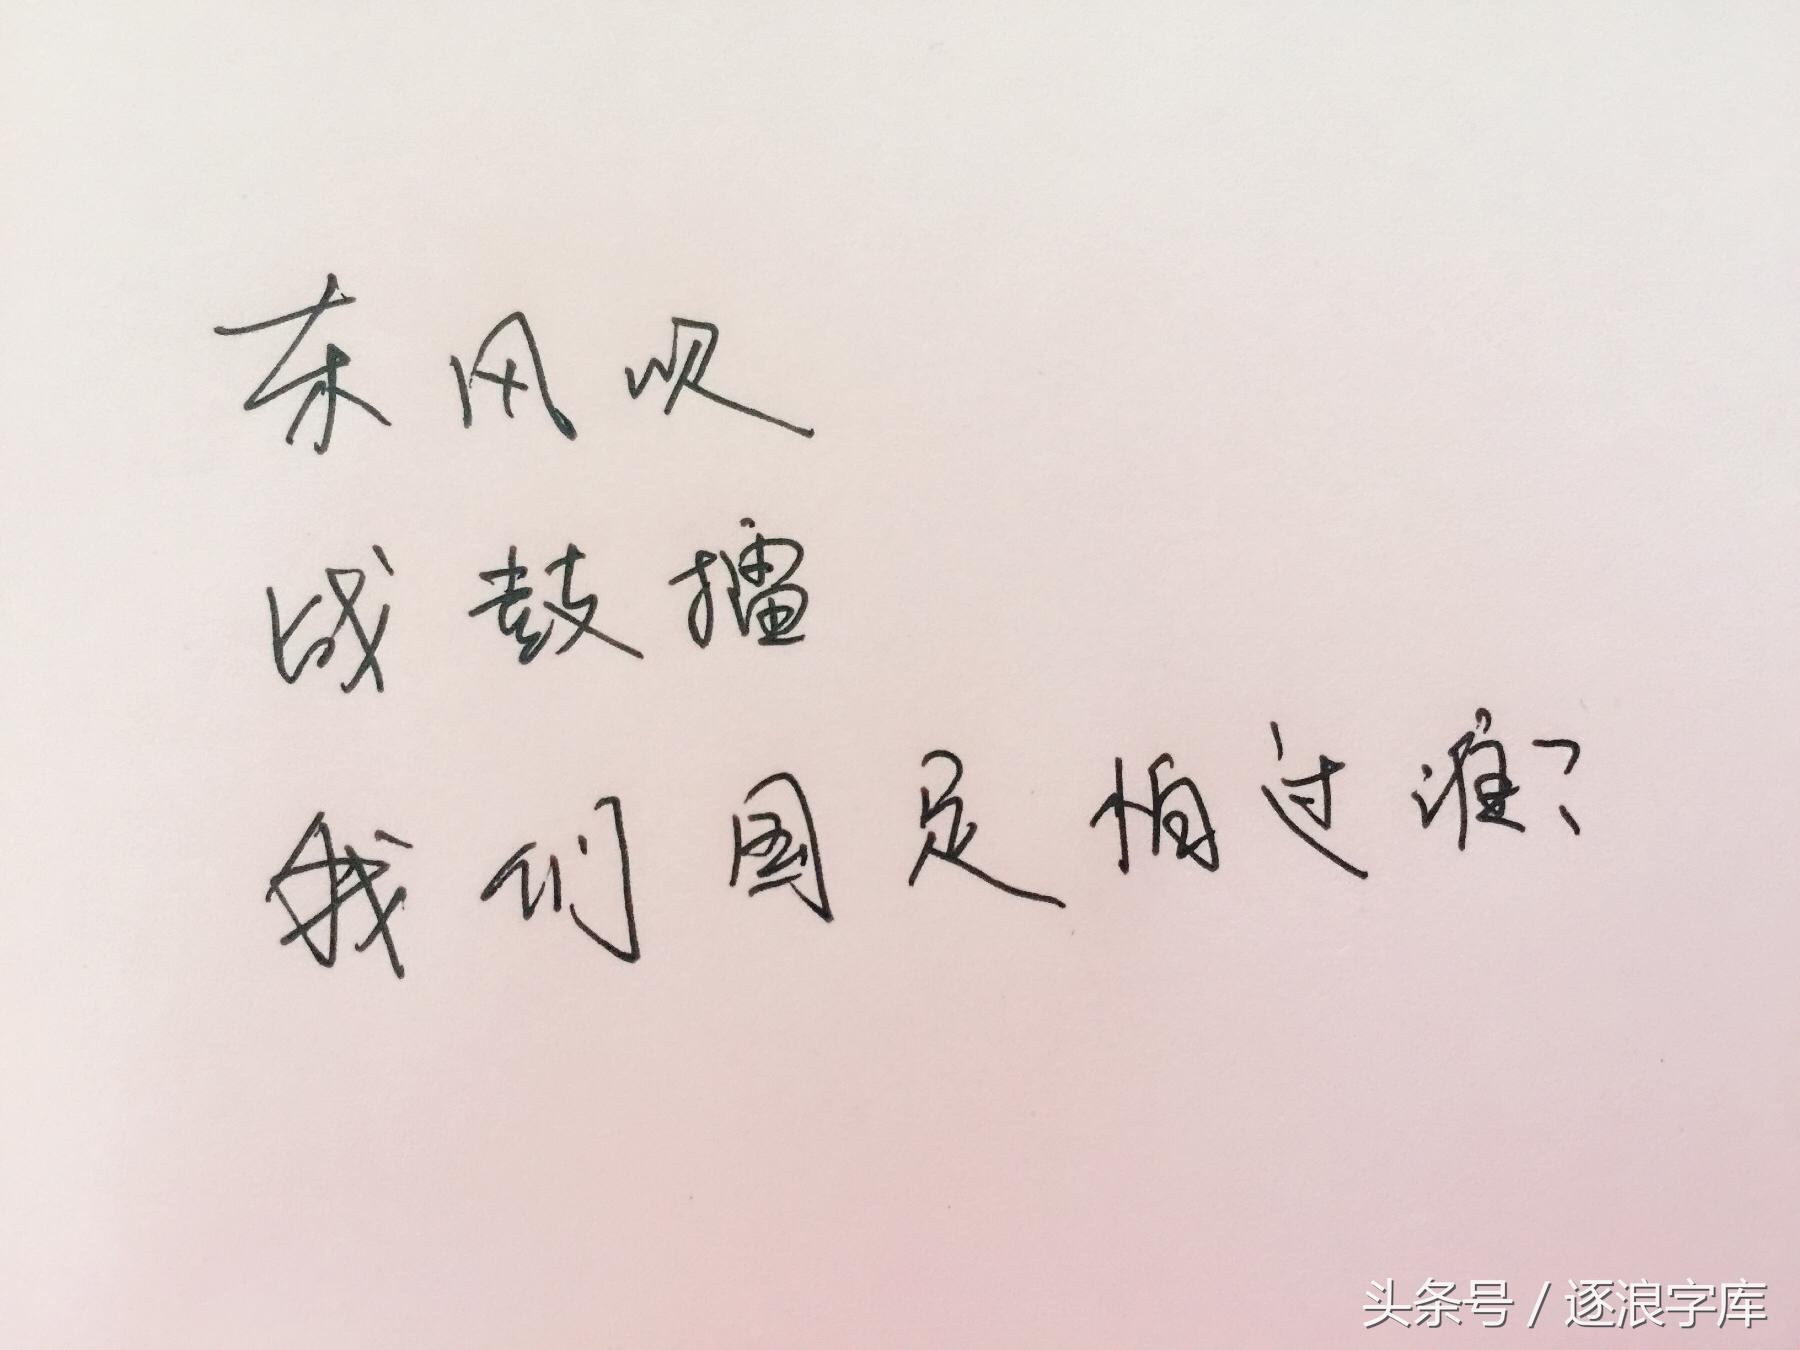 东风吹
战鼓擂
我们国足怕过谁?
头条号 / 逐浪字库